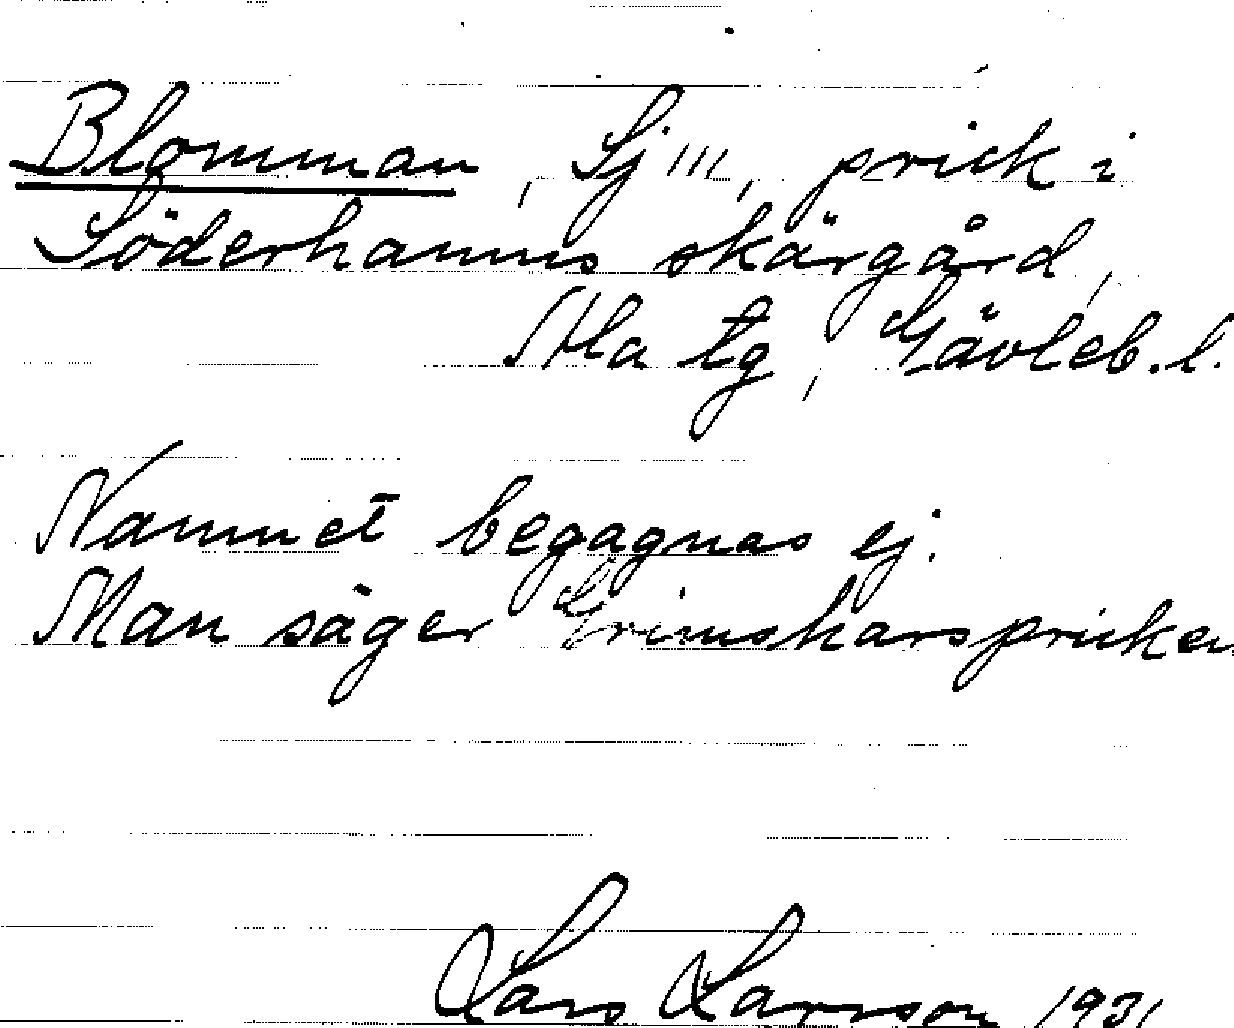 Blomman, Sj III, prick i
Söderhamns skärgård,
Ala tg, Gävleb. l.
Namnet begagnas ej.
Man säger Grimskärspricken
Lars Larsson 1931